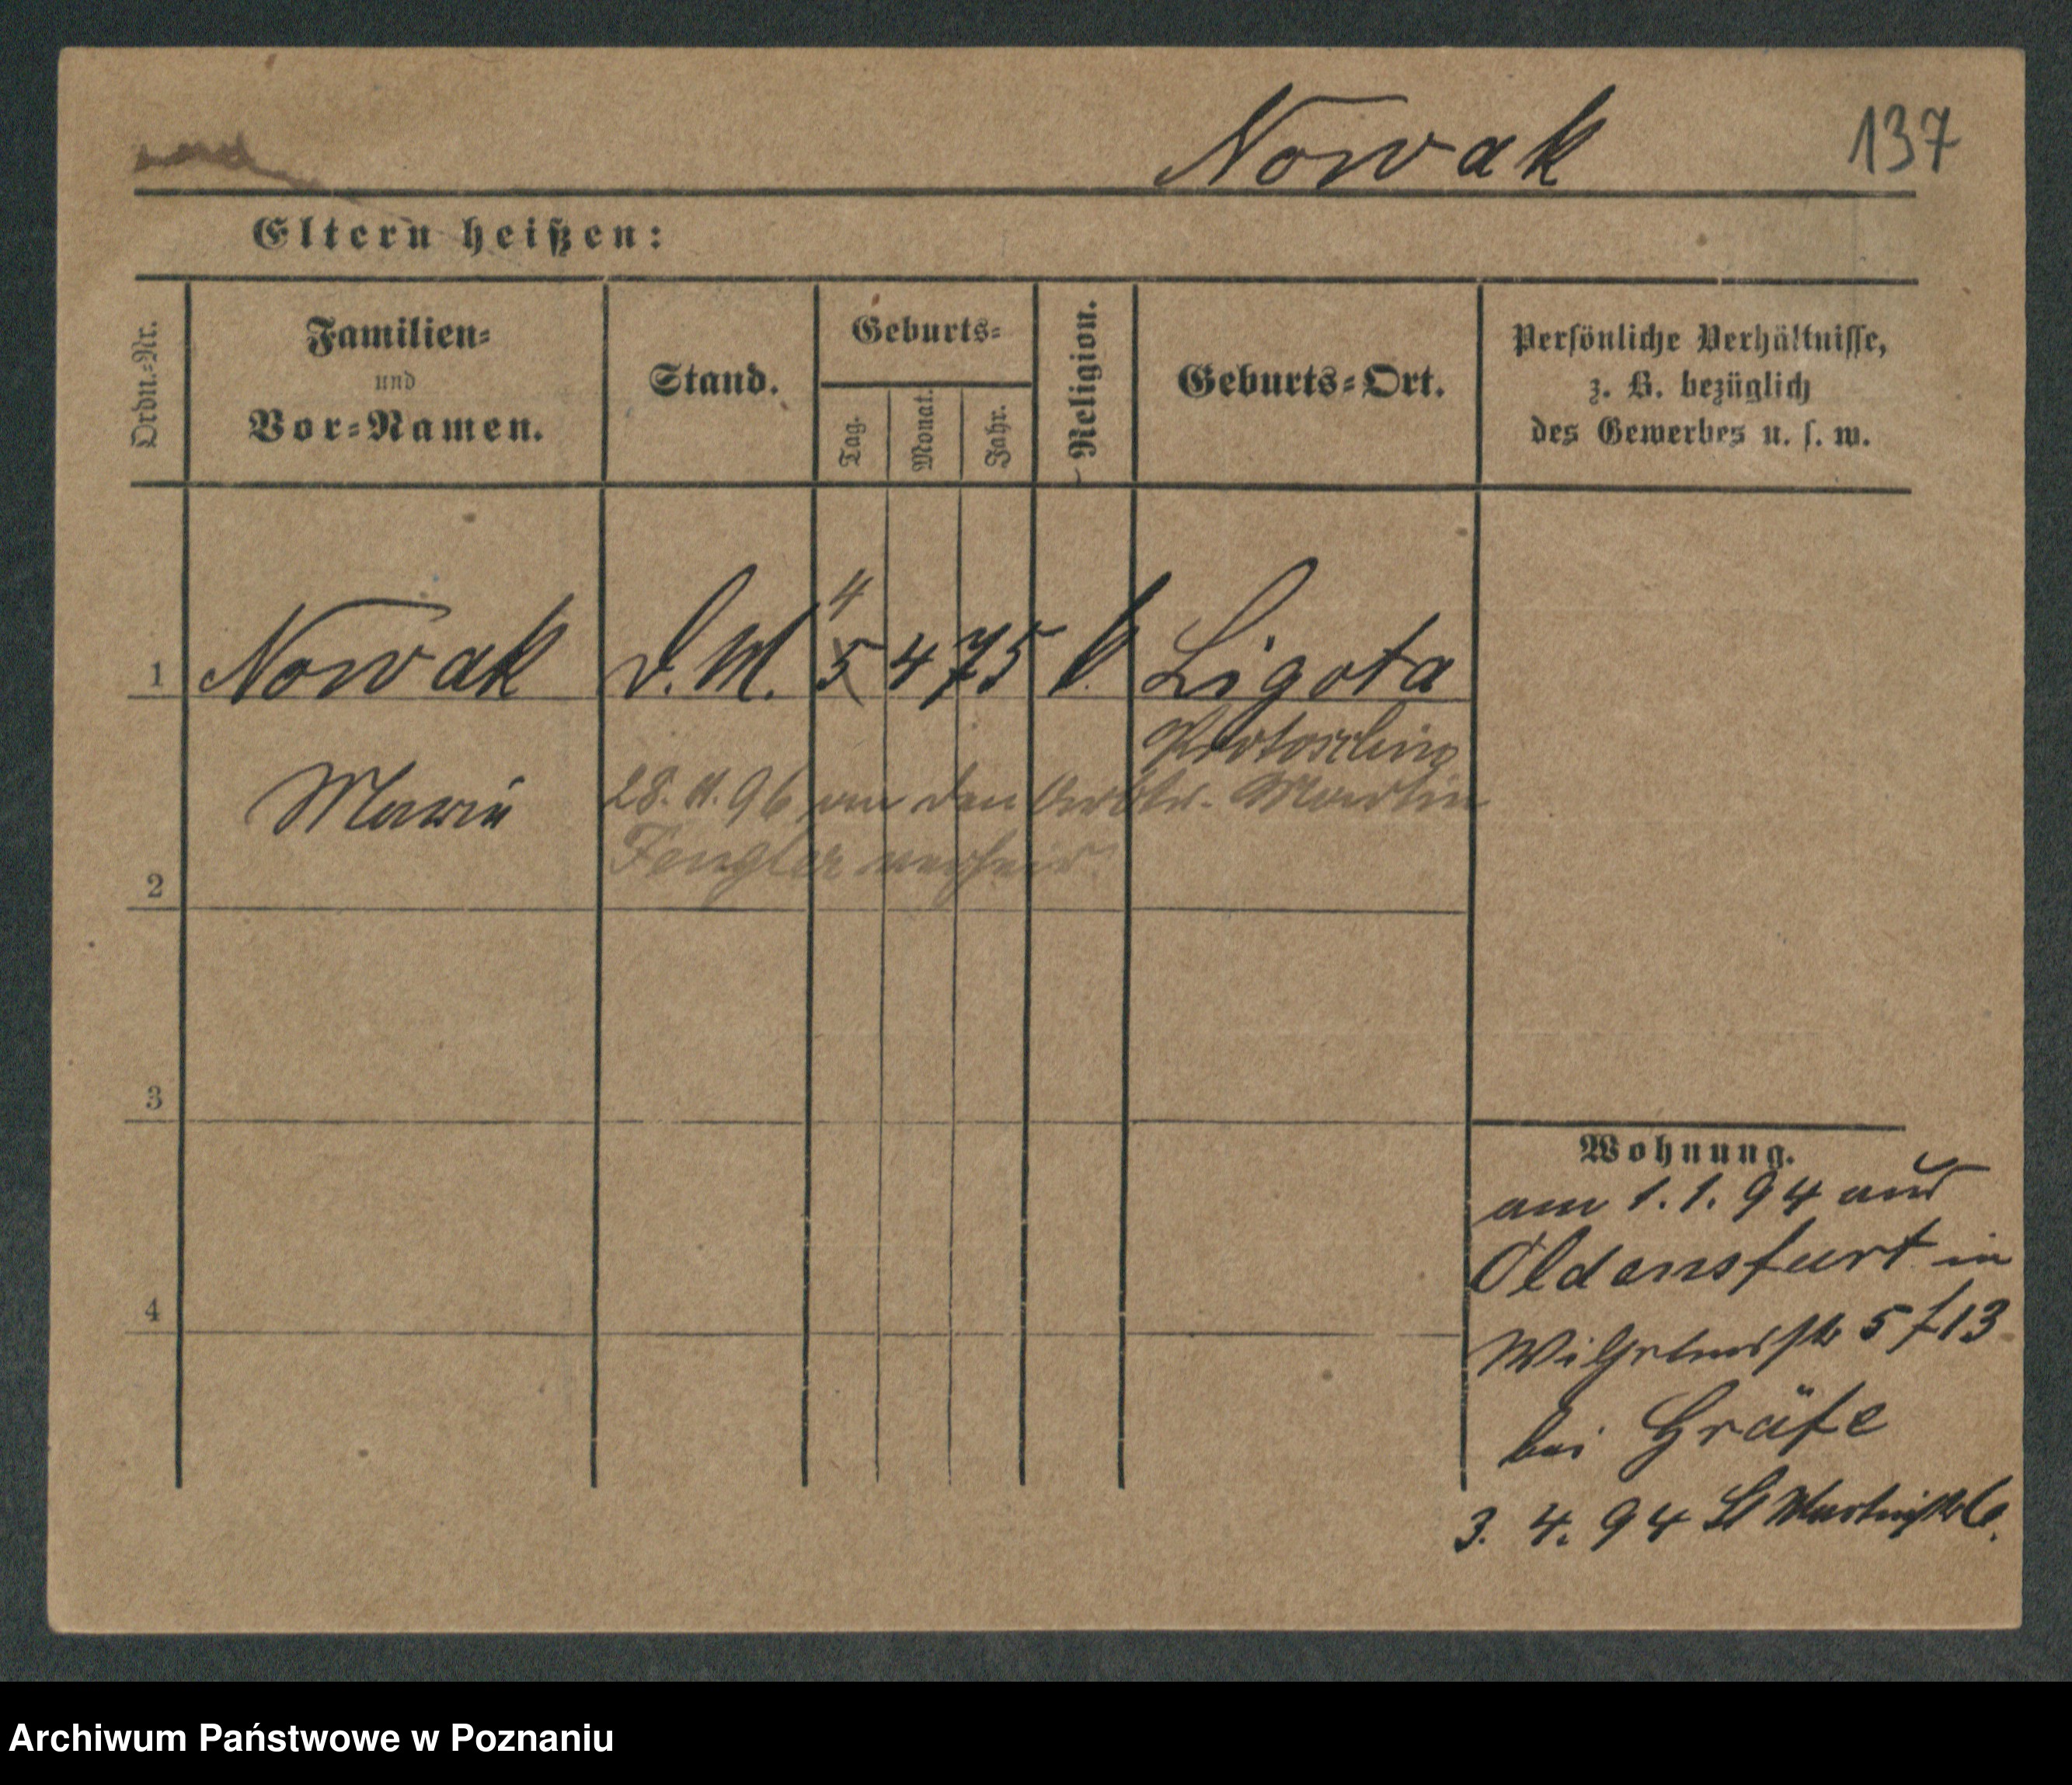 Nowak 137
Eltern heißen:
Ordn.-Nr.
Familien-
und
Vor-Namen.
Stand.
Geburts-
Tag. Monat. Jahr.
Religion.
Geburts-Ort.
Persönliche Verhältnisse,
z. B. bezüglich
des Gewerbes u. s. w.
4
1 Nowak D.M. 5 4 75 k. Ligota
Krotoschin
Marie 28. 11. 96 an den Arbtr. Martin
Fengler verheir.
2
3
4
Wohnung.
am 1. 1. 94 aus
Oldensfurt in
Wilhelmsstr 5 f 13
bei Gräfe
3. 4. 94 St Martinstr 6.
Archiwum Państwowe w Poznaniu